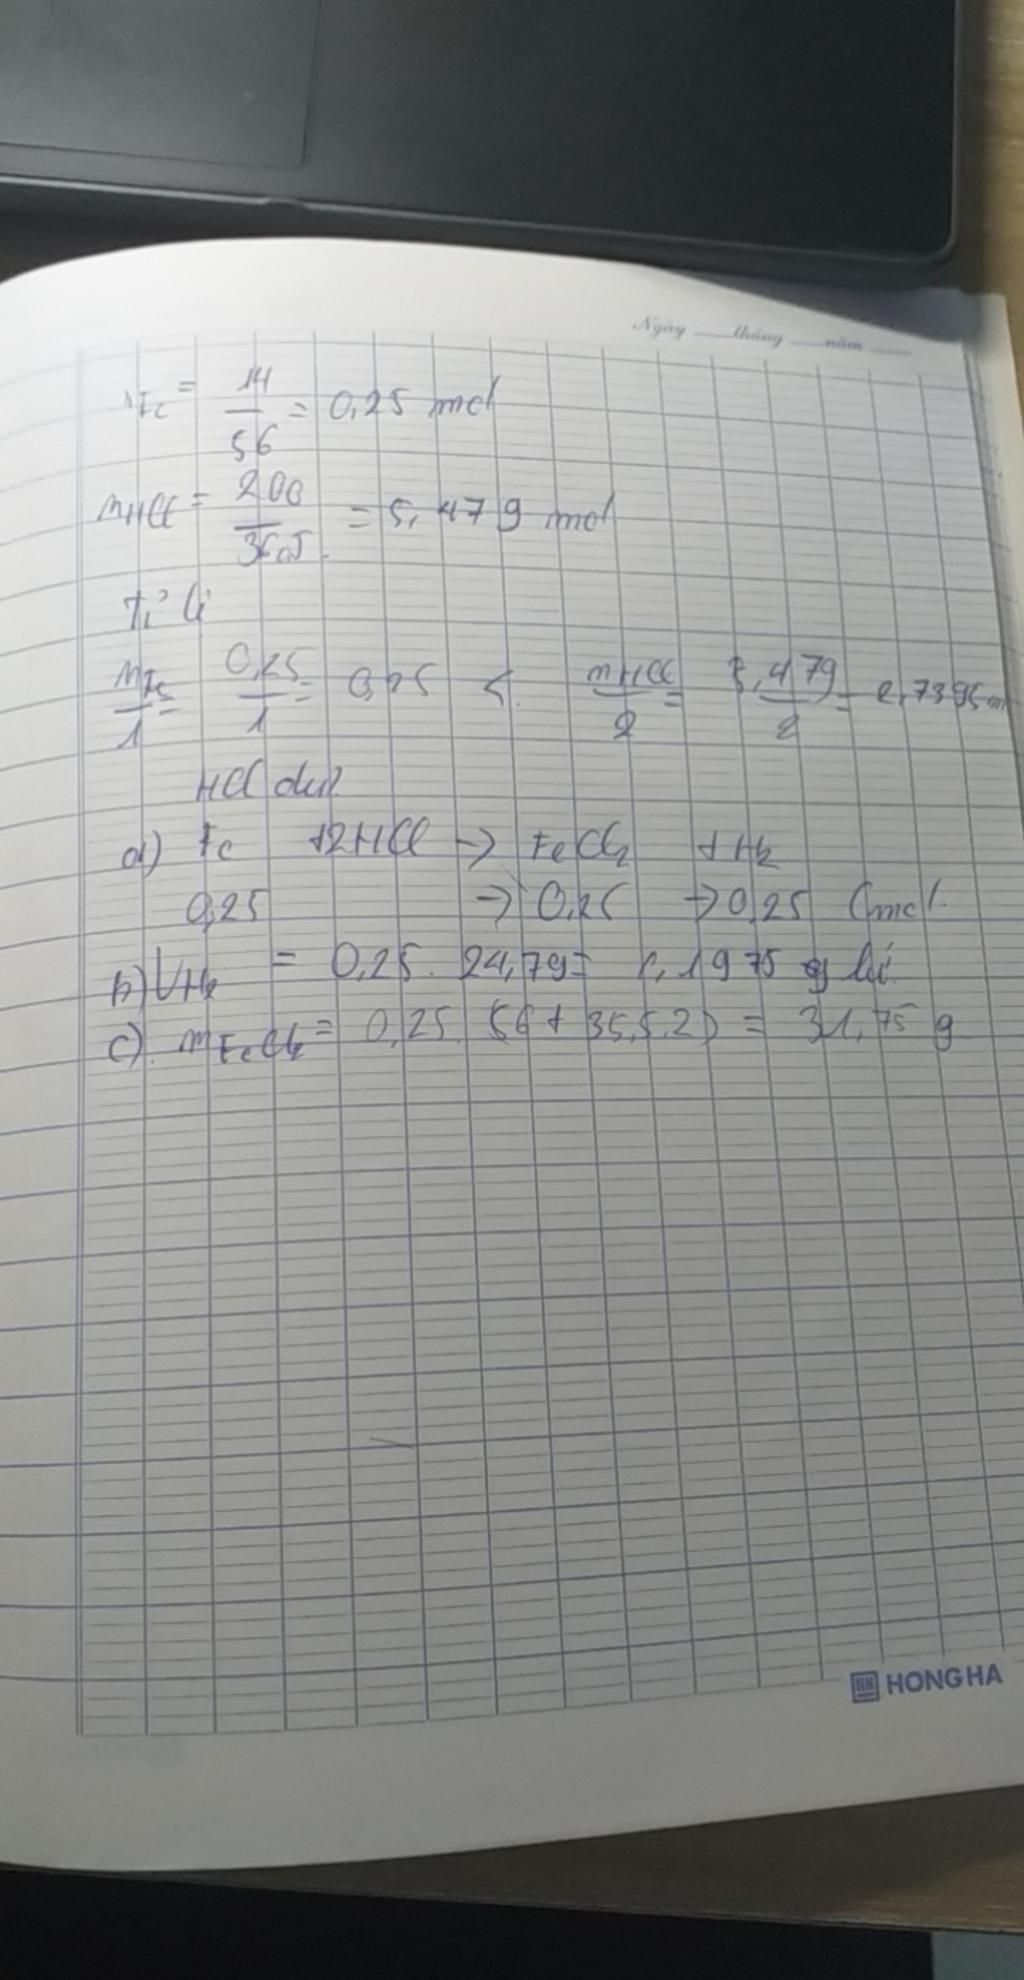 Ngày tháng năm
nFe = 14/56 = 0,25 mol
nHCl = 200/36,5 = 5,479 mol
Tỉ lệ
nFe/1 = 0,25/1 = 0,25 < nHCl/2 = 5,479/2 = 2,7395
HCl dư
a) Fe +2HCl → FeCl2 + H2
0,25 → 0,25 → 0,25 (mol
b) VH2 = 0,25 . 24,79 = 6,1975 lít
c) mFeCl2 = 0,25. (56 + 35,5.2) = 31,75 g
HH HONG HA